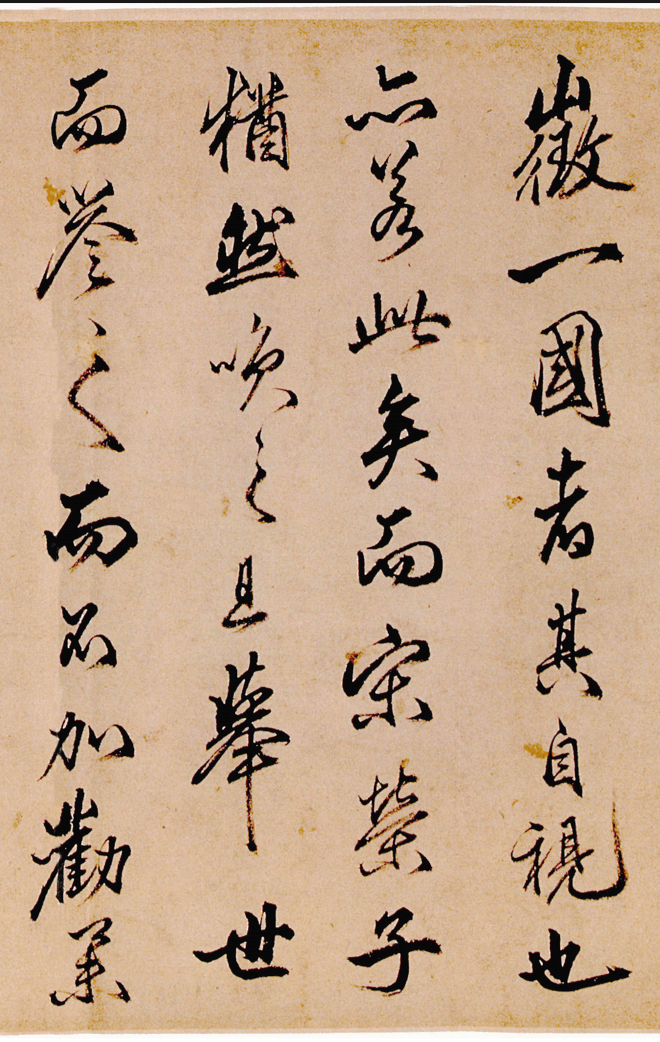 徵一國者其自視也
亦若此矣而宋榮子
猶然咲之且舉世
而譽之而不加勸舉